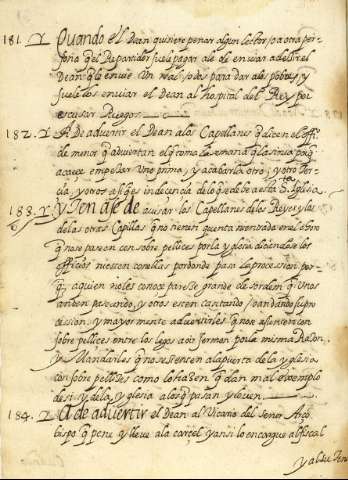 181. Y Quando el Dean quisiere penar algun lector, o a otra per-
sona q̃l Repartidor suela pagar, a de enviar a dezir el
Dean, q̃ le envie Un real, o dos para dar a los pobres, y
suele los enviar el Dean al hospital del Rey por
escusar Ruegos.
182. Y A De advertir el Dean a los Capellanes q̃ dizen el offi.
de menor q̃ adviertan el q̃ toma la semana q̃ la sirva porq̃
acaece empeçar Uno prima, y acabarla otro, y otro Ter-
cia, y otro assi q̃ es indecencia de lo q̃ se debe a esta S.ta Iglesia.
183. Y Y Ten a se de avisar los Capellanes de los Reyes y los
de las otras Capillas q̃ no tienen quenta ni entrada en el choro
q̃ no se paseen con sobrepellices por la yglesia diciendose los
officios ni esten con ellas por donde pasa la procession por-
q̃ a quien no les conoce parece grande desorden q̃ Unos
anden paseando, y otros esten cantando / o andando su pro-
cession, y mayormente advertirles q̃ no se assienten con
sobrepellices entre los legos a oir sermon por la misma Razon.
Y Mandarles q̃ no se esten en la puerta de la yglesia
con sobrepellices como lo hazen q̃ dan mal exemplo
de si, y de la yglesia a los q̃ pasan y lo ven.
184. Y A de advertir el Dean al Vicario del señor Arço-
bispo q̃ pene y lleve a la carcel y ansi lo encargue al fiscal